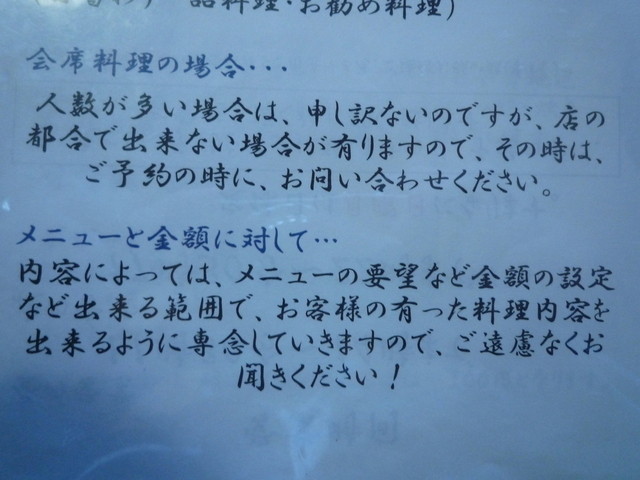 一品料理・お勧め料理)
会席料理の場合・・・
人数が多い場合は、申し訳ないのですが、店の
都合で出来ない場合が有りますので、その時は、
ご予約の時に、お問い合わせください。
メニューと金額に対して・・・
内容によっては、メニューの要望など金額の設定
など出来る範囲で、お客様の有った料理内容を
出来るように専念していきますので、ご遠慮なくお
聞きください!